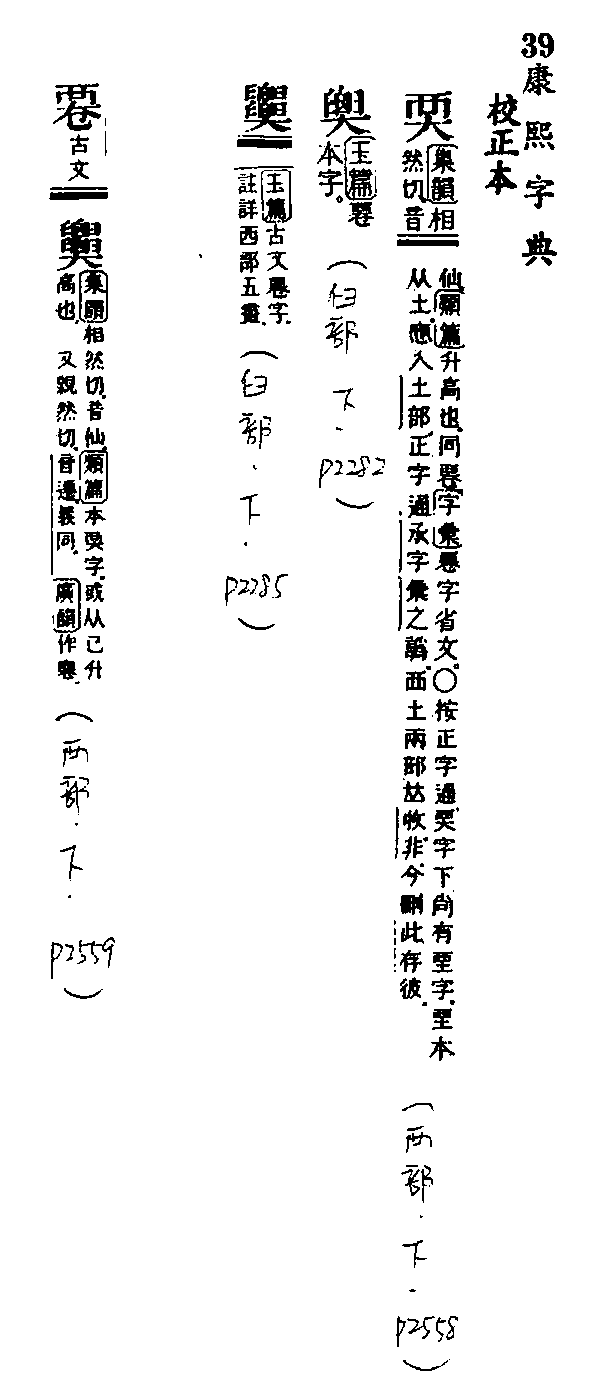 39康熙字典
校正本
集韻相
然切音
仙類篇升高也同䙴字彙䙴字省文〇按正字通字下尚有垔字垔本
从土應入土部正字通承字彙之譌西土兩部𠀤收非今刪此存彼
(西部.下.p2558)
玉篇䙴
本字
(臼部下.p2282)
玉篇古文䙴字
註詳西部五畫
(臼部.下.p2285)
古文
集韻相然切音仙類篇本字或从已升
高也 又親然切音遷義同 廣韻作䙴
(西部.下.p2559)